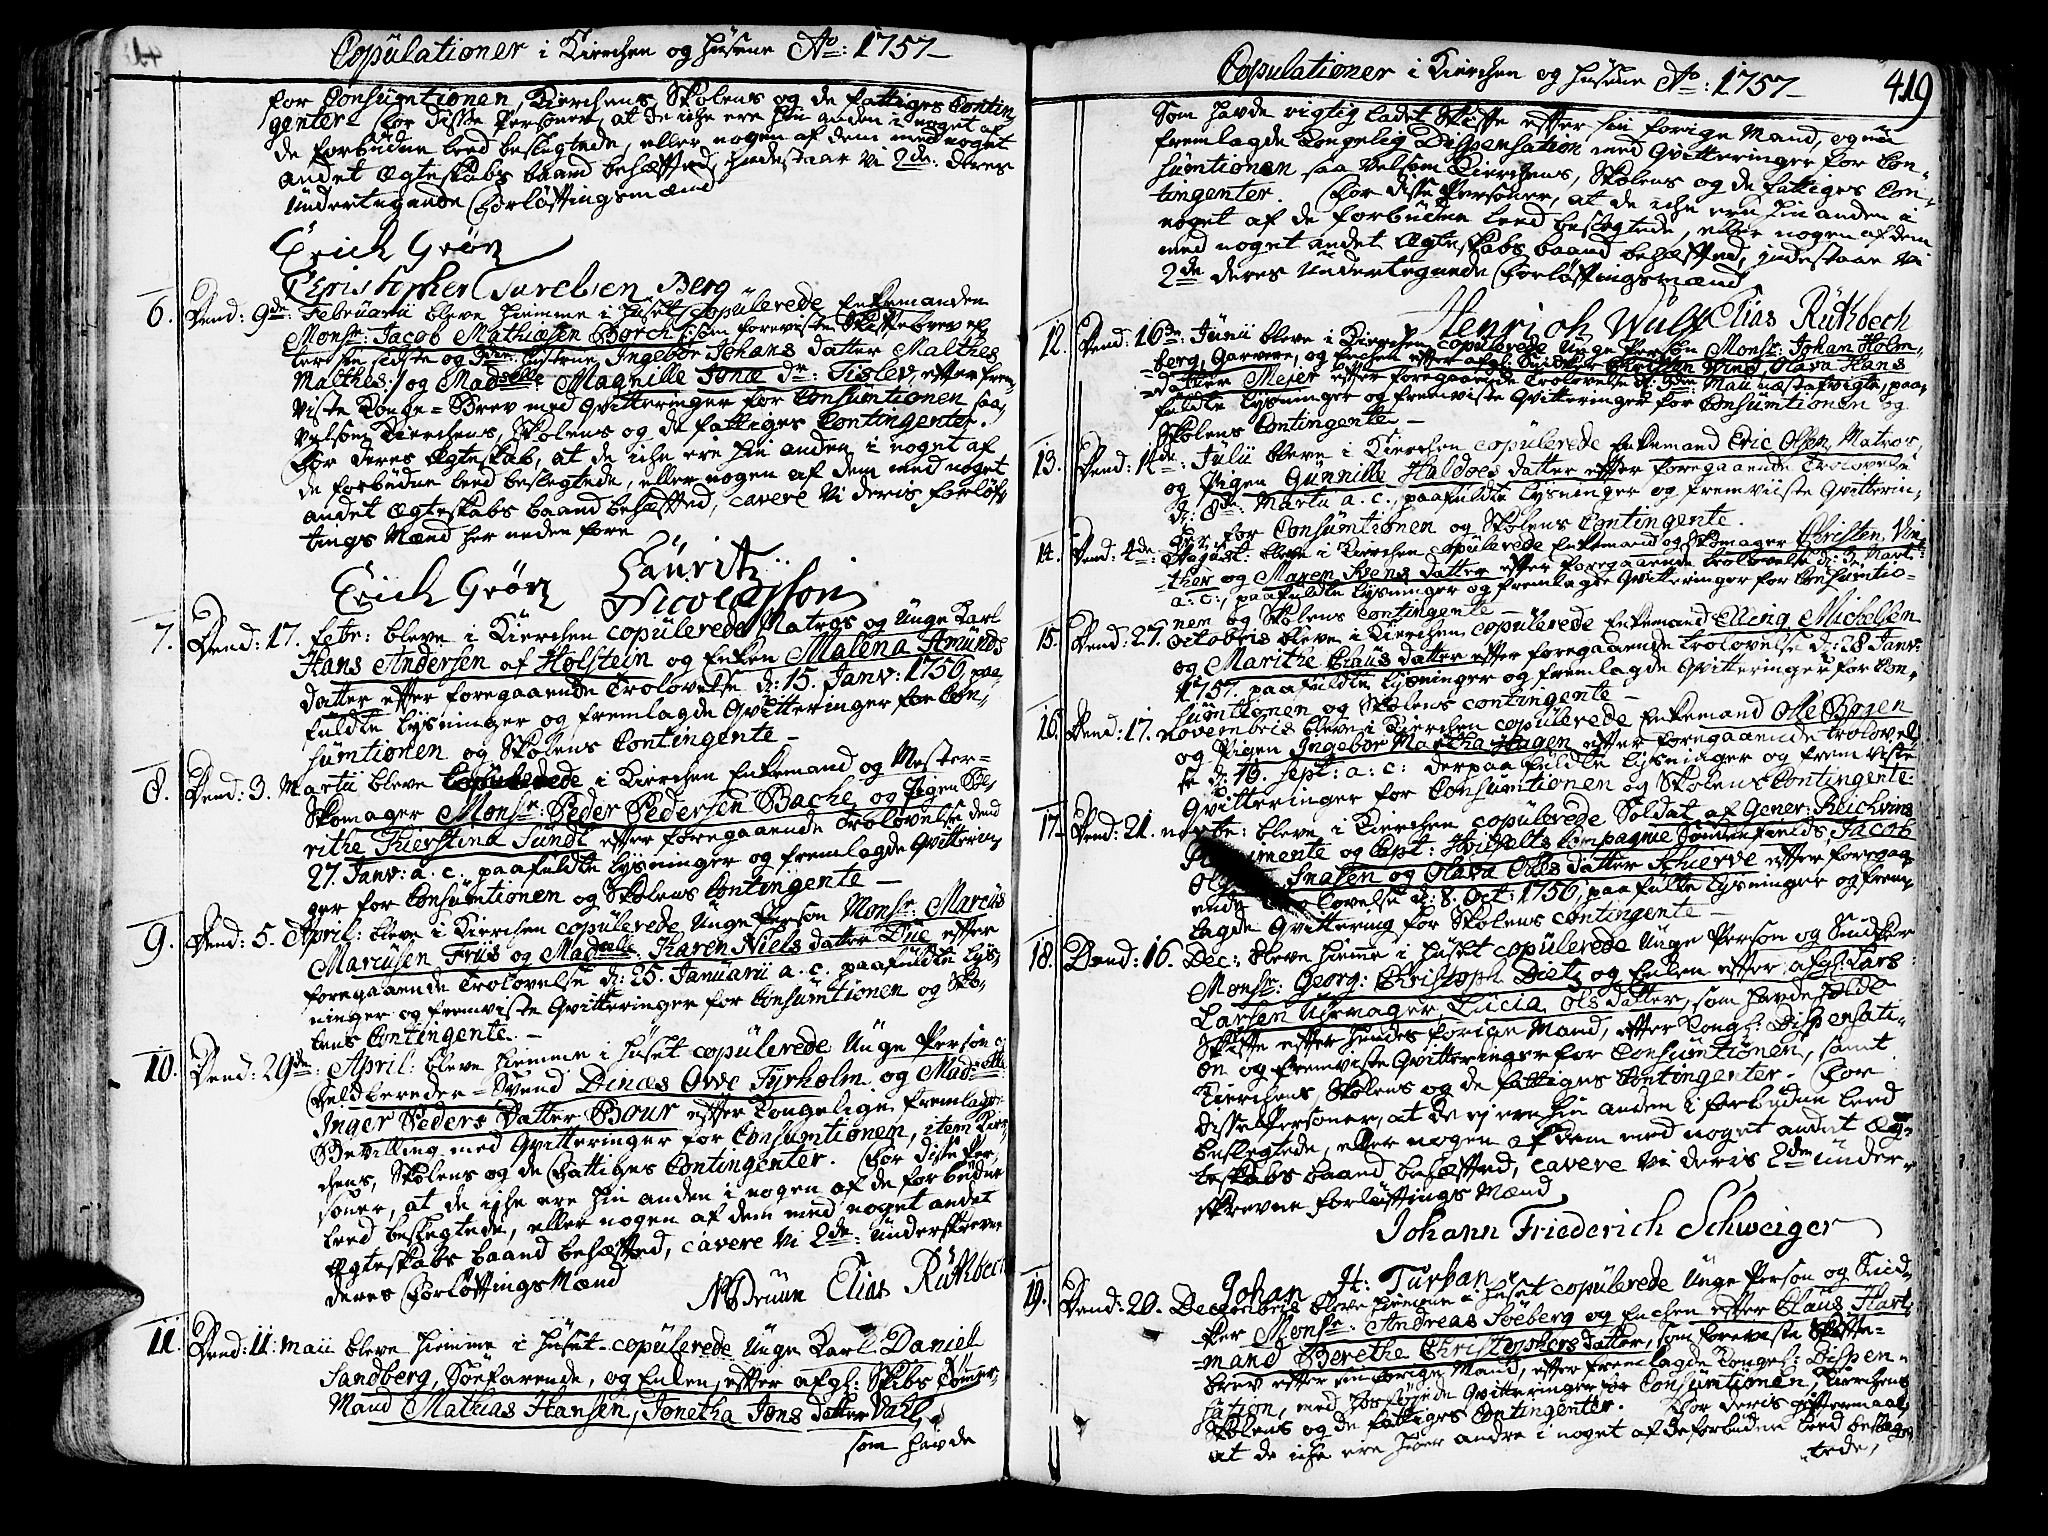 Copulationer i Kierchen og Husene Ao: 1757
for Consumtionen, Kierchens Skolens og de fattiges Contin,
genter. for disse Personer, at de iche ere hin anden i noget af
de forbudne leed beslegtede, eller nogen af dem med noget
andet Ægteskabs baand behæfted, indestaar Vi 2de: deres
Undertegnede Forløftningsmænd
Erich Grøn
Christopher Turelsen Berg
6. Dend: 9de: Februarii bleve hiemme i Huset Copulerede Enkemanden
Monsr: Jacob Mathiæsen Borch (: som foreviste Skiftebrev ef,
ter sin sidste og 3die hustrue, Ingebor Johans datter Malthes
Malthes:/ og Madselle Magnille Jonæ dr: Tislev, efter frem,
viste Konge-Brev med Qvitteringer for Consumtionen saa,
velsom Kierchens, Skolens og de fattiges Contingenter.
for deres Ægteskab, at de iche ere hin anden i noget af
de forbudne leed beslegtede, eller nogen af dem med noget
andet Ægteskabs baand behæfted, cavere Vi deris forløf,
tings Mænd her neden fore
Erich Grøn Lauritz Nicolaisson
7. Dend: 17. Febr: bleve i Kierchen copulerede Matros og Unge Karl
Hans Andersen af Holstein og Enken Malena Amunds
datter efter foregaaende Trolovelse d: 15. Janv: 1756, paa
fuldte Lysninger og fremlagde Qvitteringer for Con,
sumtionen og Skolens Contingente
8. Dend: 3. Martii bleve Copulerede i Kierchen Enkemand og Mester-
Skomager Monsr: Peder Pedersen Bache, og Pigen Be,
rithe Kierstina Sundt efter foregaaende Trolovelse dend
27. Janv: a. c. paafuldte Lysninger og fremlagde Qvitterin,
ger for Consumtionen og Skolens Contingente
9. Dend: 5. April: bleve i Kierchen copulerede Unge Person Monsr: Marcus
Marcusen Friis og Madselle: Karen Niels datter Due efter
foregaaende Trolovelse d: 25. Januarii a. c. paafuldte Lys,
ninger og fremviste Qvitteringer for Consumtionen og Sko,
lens Contingente.
10. Dend: 29de: April: bleve hiemme i Huset copulerede Unge Person og
Feldbereder-Svend Dines Ove Tyrholm og Madselle
Inger Peders Datter Bour efter Kongelige fremlagde
Bevilling med Qvitteringer for Consumtionen, item Kier,
chens, Skolens og de Fattiges Contingenter. For disse Per,
soner, at de iche ere hin anden i nogen af de forbudne
leed beslegtede, eller nogen af dem med noget andet
Ægteskabs baand behæfted, cavere Vi 2de: underskrevne
deres Forløftings Mænd
Elias Rükbech
11. Dend: 11. Maii bleve hiemme i Huset copulerede Unge Karl Daniel
Sandberg, Søefarende, og Enken efter afgl: Skibs Tømer,
Mand Mathias Hansen, Jonetha Jons datter Vahl,
som havde
Copulationer i Kierchen og Husene Ao: 1757 419
Som havde rigtig ladet Skifte efter sin forige Mand, og nu
fremlagde Kongelig Dispensation med Qvitteringer for Con,
sumtionen saa velsom Kierchens, Skolens og de fattiges Con,
tingenter. For disse Personer, at de iche ere hin anden i
noget af de forbudne leed beslegtede, eller nogen af dem
med noget andet Ægteskabs baand behæfted, indestaar Vi
2de deres Undertegnede Forløftingsmænd
Henrich Wulf Elias Rükbech
12. Dend: 16de: Junii bleve i Kierchen copulerede Unge Person Monsr: Johan Holm,
berg, Garvere, og Enchen efter afgl: Snidker Christian Wind, Olava Hans
datter Mejer efter foregaaende Trolovelse d: 3die Maii næstafvigte, paa,
fuldte Lysninger og fremviste Qvitteringer for Consumtionen og
Skolens Contingente
13. Dend: 1te: Julii bleve i Kierchen copulerede Enkemand Eric Olsen, Matros,
og Pigen Gunnille Haldoes datter efter foregaaende Trolovelse
d: 8de: Martii a. c., paafuldte Lysninger og fremviiste Qvitterin,
ger for Consumtionen og Skolens Contingente.
14. Dend: 4de: August: bleve i Kierchen copulerede Enkemand og Skomager Christen Vin,
ther og Maren Svens datter efter foregaaende Trolovelse d: 3. Mart:
a: c:, paafuldte Lysninger og fremlagde Qvitteringer for Consumtio-
nen og Skolens Contingente
15. Dend: 27. Octobris bleve i Kierchen copulerede Enkemand Elling Michelsen
og Marithe Claus datter efter foregaaende Trolovelse d: 28 Janv:
1757. paafuldte Lysninger og fremlagde Qvitteringer for Con,
sumtionen og Skolens contingente
16. Dend: 17. Novembris bleve i Kierchen copulerede Enkemand Olle Bogen
og Pigen Ingebor Martha Hagen efter foregaaende Trolovel,
se d: 13. Sept: a: c: derpaa fuldte Lysninger og frem viste
Qvitteringer for Consumtionen og Skolens Contingente.
17. Dend: 21. Novbr: bleve i Kierchen copulerede Soldat af Gener:
Regimente og Capt: Compagnie Sønden fields, Jacob
Snasen og Olava Oles datter Skierve efter foregaa,
ende Trolovelse d: 8. Oct: 1756, paafulte Lysninger og frem,
lagde Qvittering for Skolens contingente
18. Dend: 16. Dec: bleve hieme i Huset copulerede Unge Person og Snidker
Monsr: Georg: Christoph Dietz og Enken efter afgl: Lars
Larsen Uhrmager, Lucia Olsdatter, som havde holdt
Skifte efter hendes forige Mand, efter Kongl: Dispensati-
on og fremviste Qvitteringer for Consumtionen, samt
Kierchens, Skolens og de fattiges Contingenter. For
disse Personer, at de ej ere hin anden i forbudne leed
beslegtede, eller nogen af dem med noget andet Æg-
teskabs baand behæfted, cavere Vi deris 2de under-
skrevne forløftings Mænd
Johann Friederich Schweiger
Johan H: Turban
19. Dend: 20. Decembris bleve hiemme i Huset copulerede Unge Person og Snid-
ker Monsr: Andreas Soeberg og Enchen efter Claus Hart,
mand Berethe Christophers datter, som foreviste Skifte-
brev efter sin forige Mand, efter fremlagde Kongel: Dispen-
sation, med Qvitteringer for Consumtionen, Kierchens
Skolens og de fattiges Contingenter. For deris gifftermaal,
at de iche ere hver andre i noget af de forbudne leed besleg,
tede,